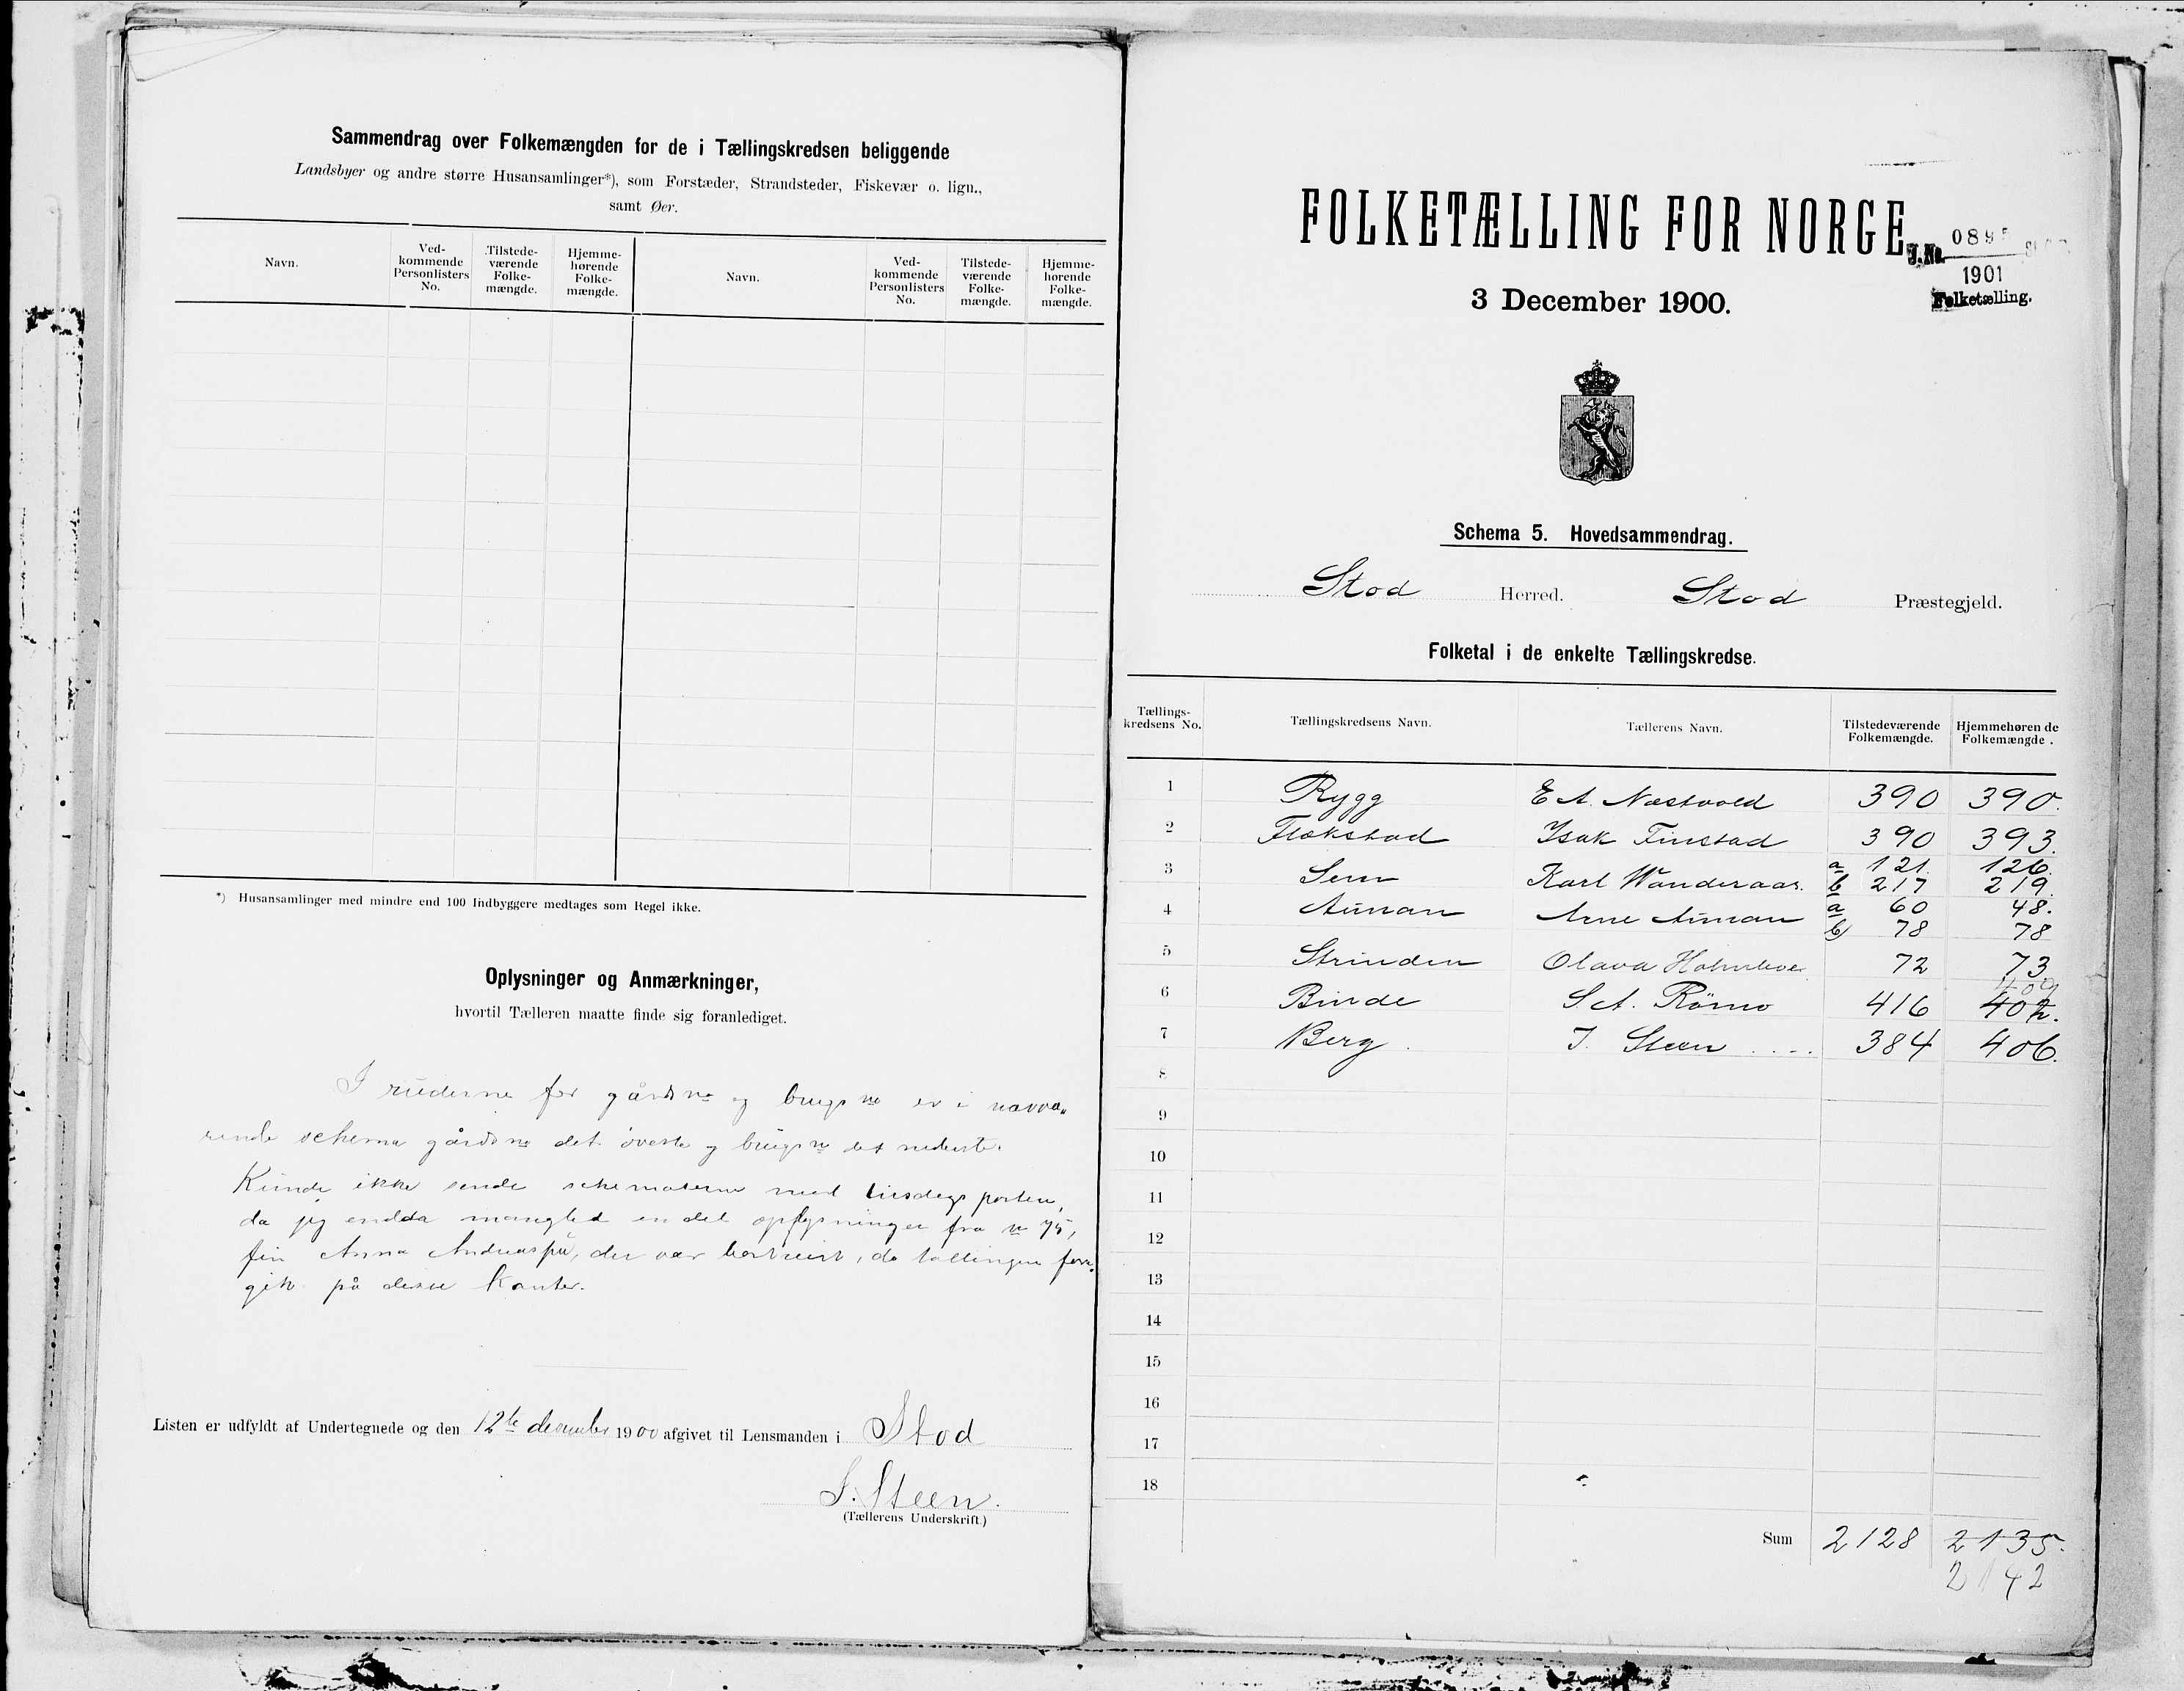 Sammendrag over Folkemængden for de i Tællingskredsen beliggende
Landsbyer og andre større Husansamlinger*), som Forstæder, Strandsteder, Fiskevær o. lign.,
samt Øer.
Navn.
Ved-
kommende
Personlisters
No.
Tilstede-
værende
Folke-
mængde.
Hjemme-
hørende
Folke-
mængde.
Navn.
Ved-
kommende
Personlisters
No.
Tilstede-
værende
Folke-
mængde.
Hjemme-
hørende
Folke-
mængde.
*) Husansamlinger med mindre end 100 Indbyggere medtages som Regel ikke.
Oplysninger og Anmærkninger,
hvortil Tælleren maatte finde sig foranlediget.
I ruderne for gårds no og brugs no er i nærvæ-
rende schema gårds no det øverste og brugs no det nederste.
Kunde ikke sende schemaerne med tirsdags posten,
da jeg endda mangled en del opplysninger fra no 75,
Anna der var bortreist, da tællingen fore-
gik på disse kanter.
Listen er udfyldt af Undertegnede og den 12te december 1900 afgivet til Lensmanden i Stod
J. Steen.
(Tællerens Underskrift.)
FOLKETÆLLING FOR NORGE
J. No. 089
1901
Folketælling.
3 December 1900.
Schema 5. Hovedsammendrag.
Stod Herred. Stod Præstegjeld.
Folketal i de enkelte Tællingskredse.
Tællings-
kredsens No.
Tællingskredsens Navn.
Tællerens Navn.
Tilstedeværende
Folkemængde.
Hjemmehørende
Folkemængde.
1 Rygg E A. Næstvold 390 390.
2 Flekstad Isak Finstad 390 393.
3 Sem Karl Wanderaas. a 121. 126.
b 217 219.
4 Aunan Arne Aunan a 60 48.
b 78 78
5 Strinden Olava 72 73
409
6 Binde S A. Römo 416 402.
7 Berg. J. Steen .... 384 406.
8
9
10
11
12
13
14
15
16
17
18
Sum 2128 2135.
2142